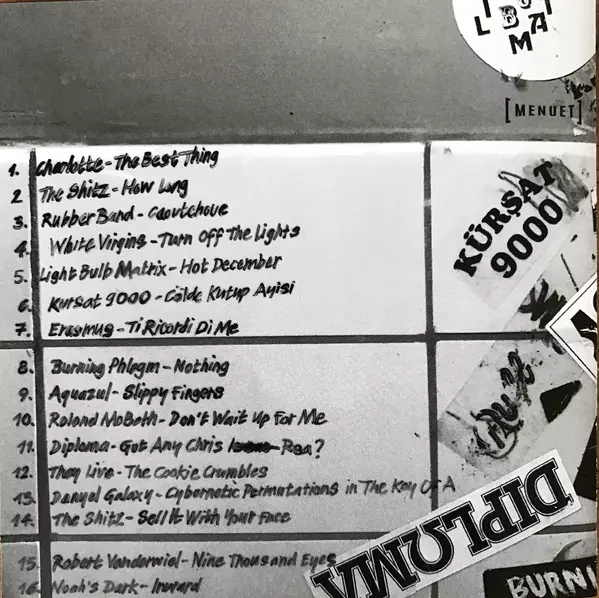 LIBUT
MA
[MENUET]
1. Charlotte - The Best Thing
2 The Shitz - How Long
3. Rubber Band - Caoutchouc
4. White Virgins - Turn Off The Lights
5. Light Bulb Matrix - Hot December
6. Kursat 9000 - Cölde Kutup Ayisi
7. Erasmus - Ti Ricordi Di Me
KÜRŞAT
9000
8. Burning Phlegm - Nothing
9. Aquazul - Slippy Fingers
10. Roland McBeth - Don't Wait Up For Me
11. Diploma - Got Any Chris Rea?
12. They Live - The Cookie Crumbles
13. Danyel Galaxy - Cybernetic Permutations in The Key Of A
14. The Shitz - Sell It With Your Face
DIPLOMA
15. Robert Vanderwiel - Nine Thousand Eyes
16. Noah's Dark - Inward
BURNI